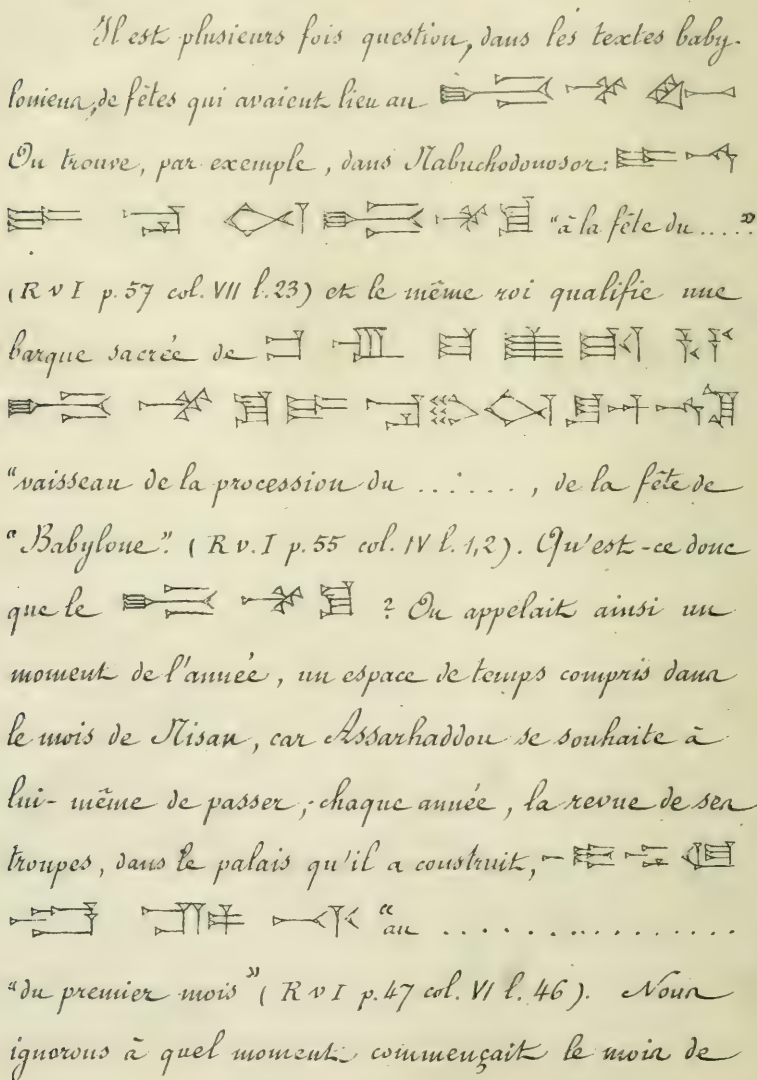 Il est plusieurs fois question, dans les textes baby-
loniens, de fêtes qui avaient lieu au
On trouve, par exemple, dans Nabuchodonosor:
"à la fête du ...."
(R v I p. 57 col. VII l. 23) et le même roi qualifie une
barque sacrée de
"vaisseau de la procession du ......, de la fête de
"Babylone". (R v. I p. 55 col. IV l. 1, 2). Qu'est-ce donc
que le ? On appelait ainsi un
moment de l'année, un espace de temps compris dans
le mois de Nisan, car Assarhaddon se souhaite à
lui-même de passer, chaque année, la revue de ses
troupes, dans le palais qu'il a construit,
"au ................
"du premier mois" (R v I p. 47 col. VI l. 46). Nous
ignorons à quel moment commençait le mois de